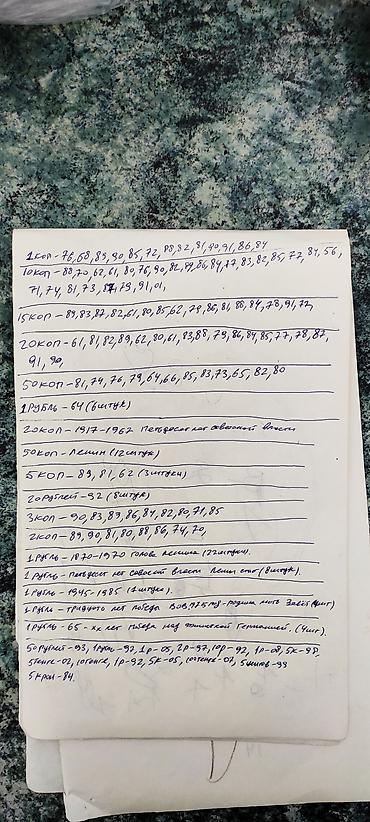 1коп-76,68,89,90,85,72,88,82,81,90,91,86,84
10коп-88,70,62,61,80,76,90,82,89,86,84,77,83,82,85,72,84,56,
71,74,81,73,79,91,01,
15коп-89,83,87,82,61,80,85,62,79,86,81,88,84,78,91,72,
20коп-61,81,82,89,62,80,61,83,88,79,86,84,85,77,78,87,
91,90,
50коп-81,74,76,79,64,66,85,83,73,65,82,80
1рубль-64(6штук)
20коп-1917-1967 Петьдесят лет советской власти
50коп-Ленин(12штук)
5коп-89,81,62(3штуки)
20рублей-92(8штук)
3коп-90,83,89,86,84,82,80,71,85
2коп-89,90,81,80,88,86,74,70,
1рубль-1870-1970 голова ленина(22штуки).
1рубль-петьдесят лет советской власти Ленин стоит(8штук).
1рубль-1945-1985
1рубль-тридцать лет победы ВОВ родина мать
1рубль-65-xx лет победа над фашисткой Германией.(4шт).
50рублей-93,1рубль-92,1р-05,2р-97,10р-92,1р-08,5к-98,
5тенге-02,10тенге,1р-92,5к-05,10тенге-02,5центов-99
5крон-84.